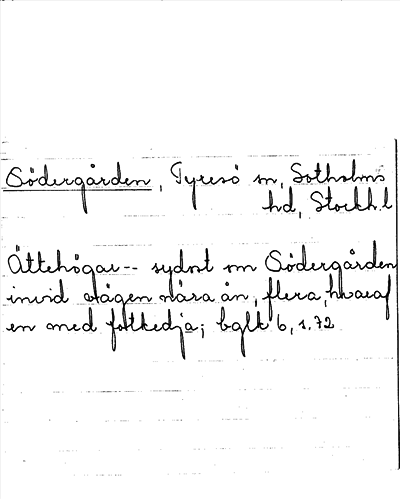 Södergården, Tyresö sn, Sotholms
hd, Stockh.l
Ättehögar-- sydost om Södergården
invid vägen nära ån, flera, hvaraf
en med fotkedja; bglt 6, s. 72